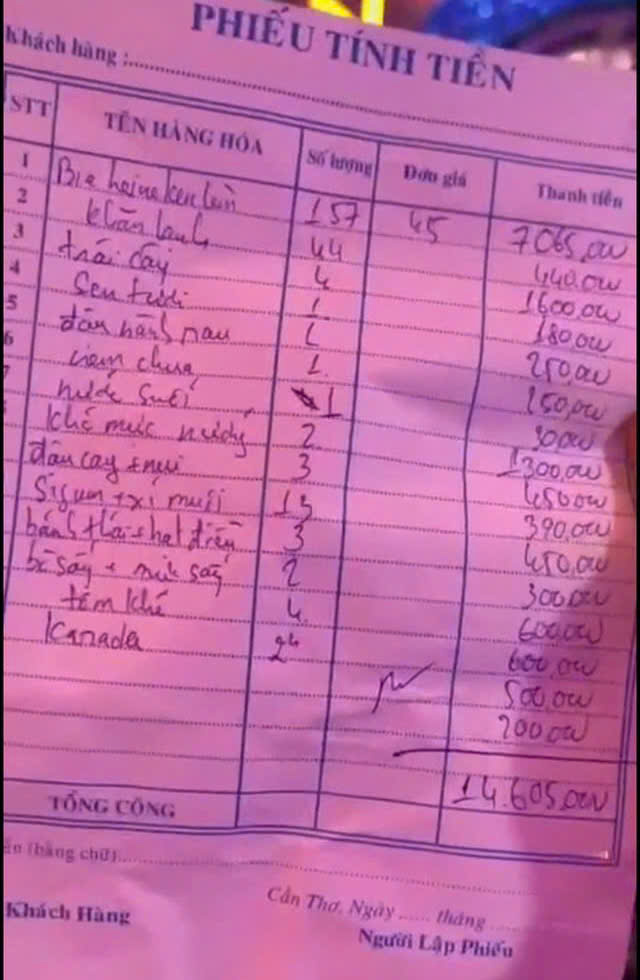 PHIẾU TÍNH TIỀN
Khách hàng :
STT TÊN HÀNG HÓA Số lượng Đơn giá Thanh tiền
1 Bia heineken lùn 157 45 7065,000
2 khăn lạnh 44 440,000
3 trái cây 4 1600,000
4 Sen tươi 1 180,000
5 1 250,000
6 nem chua 1 150,000
nước suối 1 30000
khô mực nướng 2 1300,000
3 450,000
Sigum + xí muội 13 390,000
3 450,000
bò sấy + mít sấy 2 300,000
tôm khô 4 600,000
Kanada 2h 600,000
500,000
200,000
14.605,000
TỔNG CÔNG
(bằng chữ)
Cần Thơ, Ngày ...... tháng
Khách Hàng Người Lập Phiếu